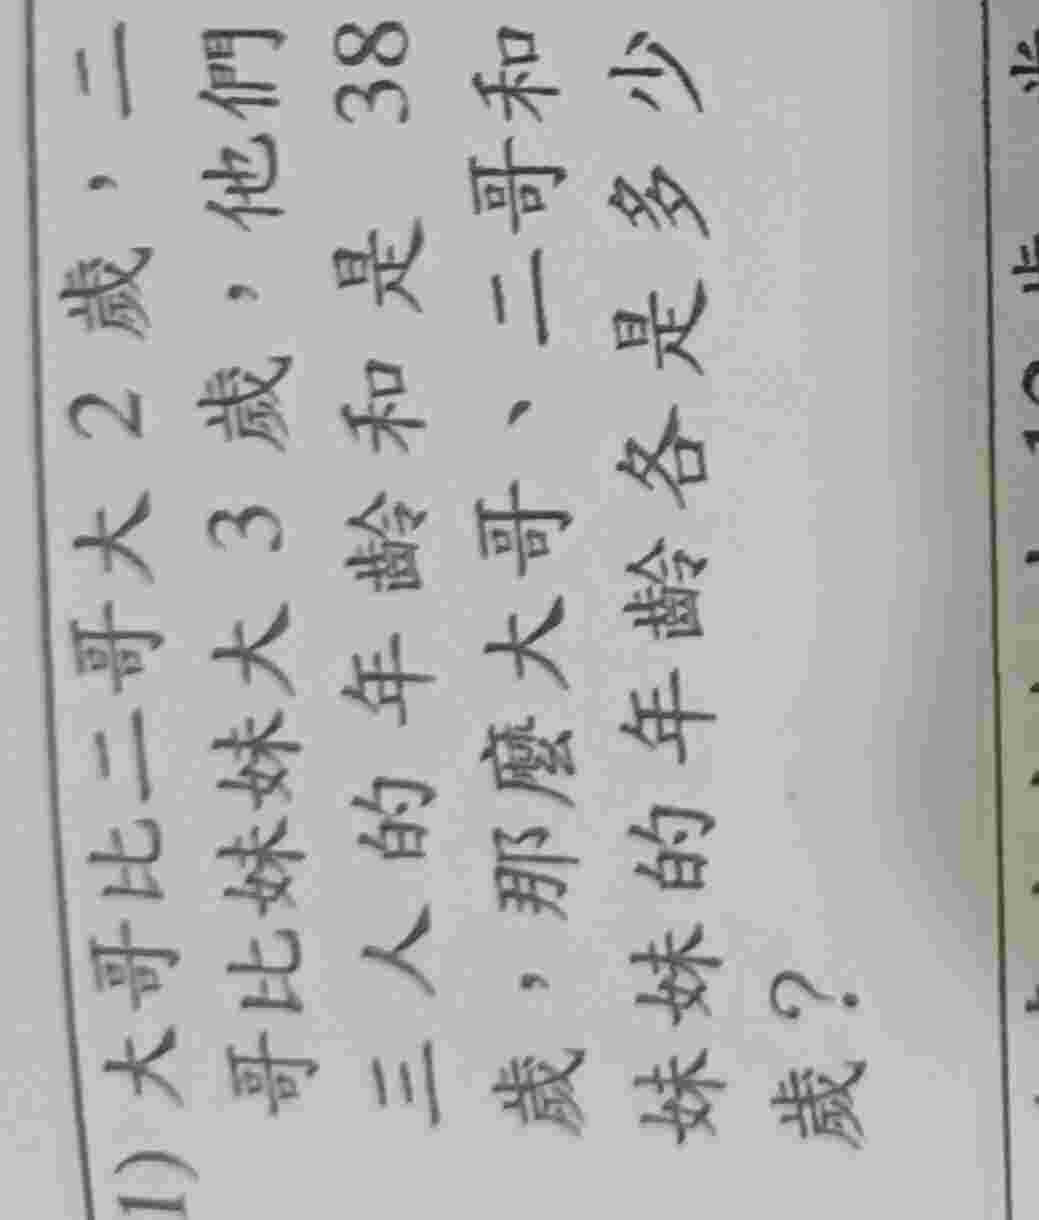 1) 大哥比二哥大 2 歲，二
哥比妹妹大 3 歲，他們
三人的年齡和是 38
歲，那麼大哥、二哥和
妹妹的年齡各是多少
歲？